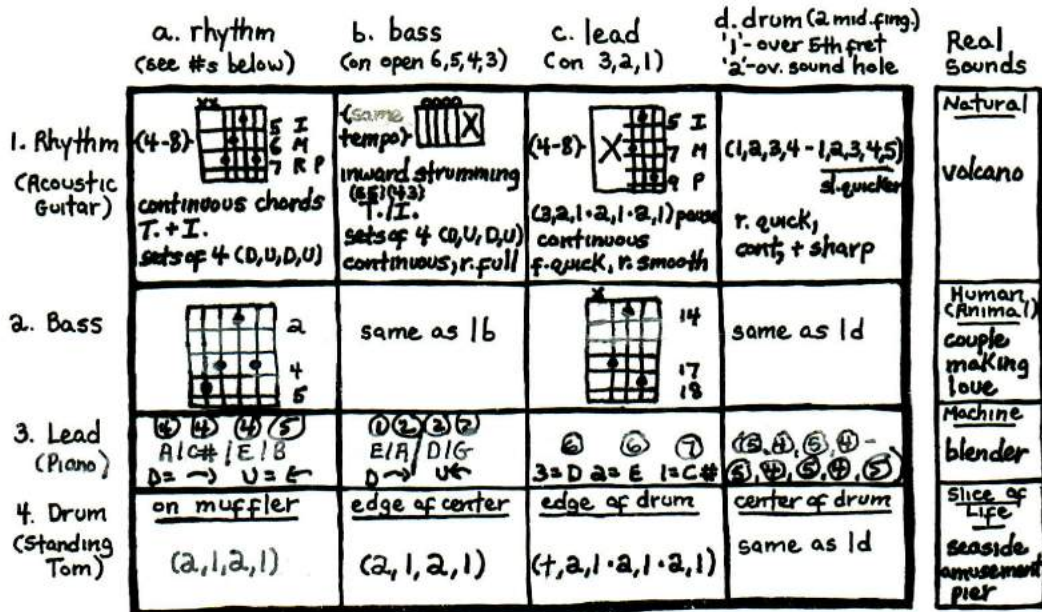 a. rhythm
(see #s below)
b. bass
(on open 6,5,4,3)
c. lead
(on 3,2,1)
d. drum (2 mid. fing.)
'1'- over 5th fret
'2'- ov. sound hole
Real
Sounds
1. Rhythm
(Acoustic
Guitar)
(4-8)
xx
5 I
6 M
7 R P
continuous chords
T. + I.
sets of 4 (D,U,D,U)
(same
tempo)
oooo
X
inward strumming
T./I.
sets of 4 (D,U,D,U)
continuous, r. full
(4-8)
X
5 I
7 M
9 P
(3,2,1·2,1·2,1) pause
continuous
f. quick, r. smooth
(1,2,3,4 - 1,2,3,4,5)
sl. quicker
r. quick,
cont, + sharp
Natural
volcano
2. Bass
2
4
5
same as 1b
x
14
17
18
same as 1d
Human
(Animal)
couple
making
love
3. Lead
(Piano)
4 4 4 5
A/C#/E/B
D= → U= ←
1 2 2 2
E/A/D/G
D → U ←
6 6 7
3=D 2=E 1=C#
(5,4,5,4 -
5,4,5,4,5)
Machine
blender
4. Drum
(Standing
Tom)
on muffler
(2,1,2,1)
edge of center
(2,1,2,1)
edge of drum
(+,2,1·2,1·2,1)
center of drum
same as 1d
Slice of
Life
seaside
amusement
pier